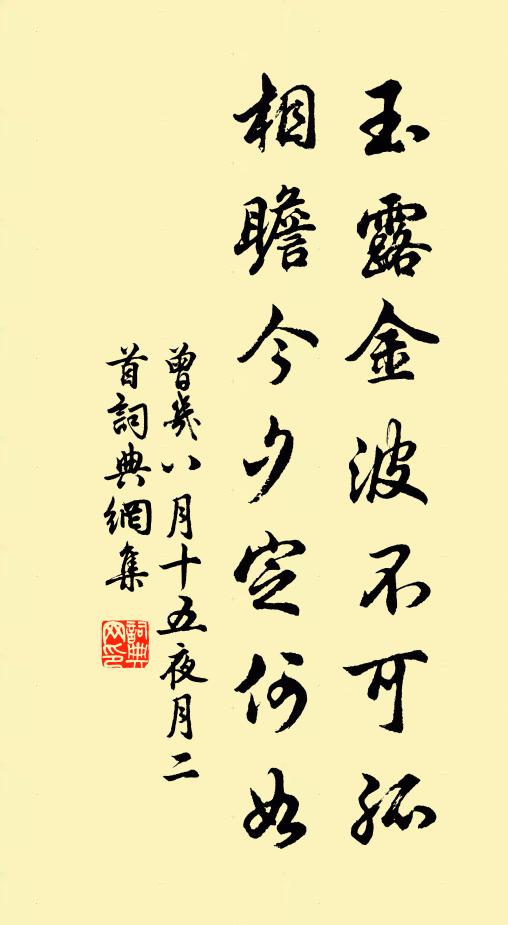 玉露金波不可孤
相瞻今夕定何如
曾幾八月十五夜月二
首詞典網集
詞典
网印